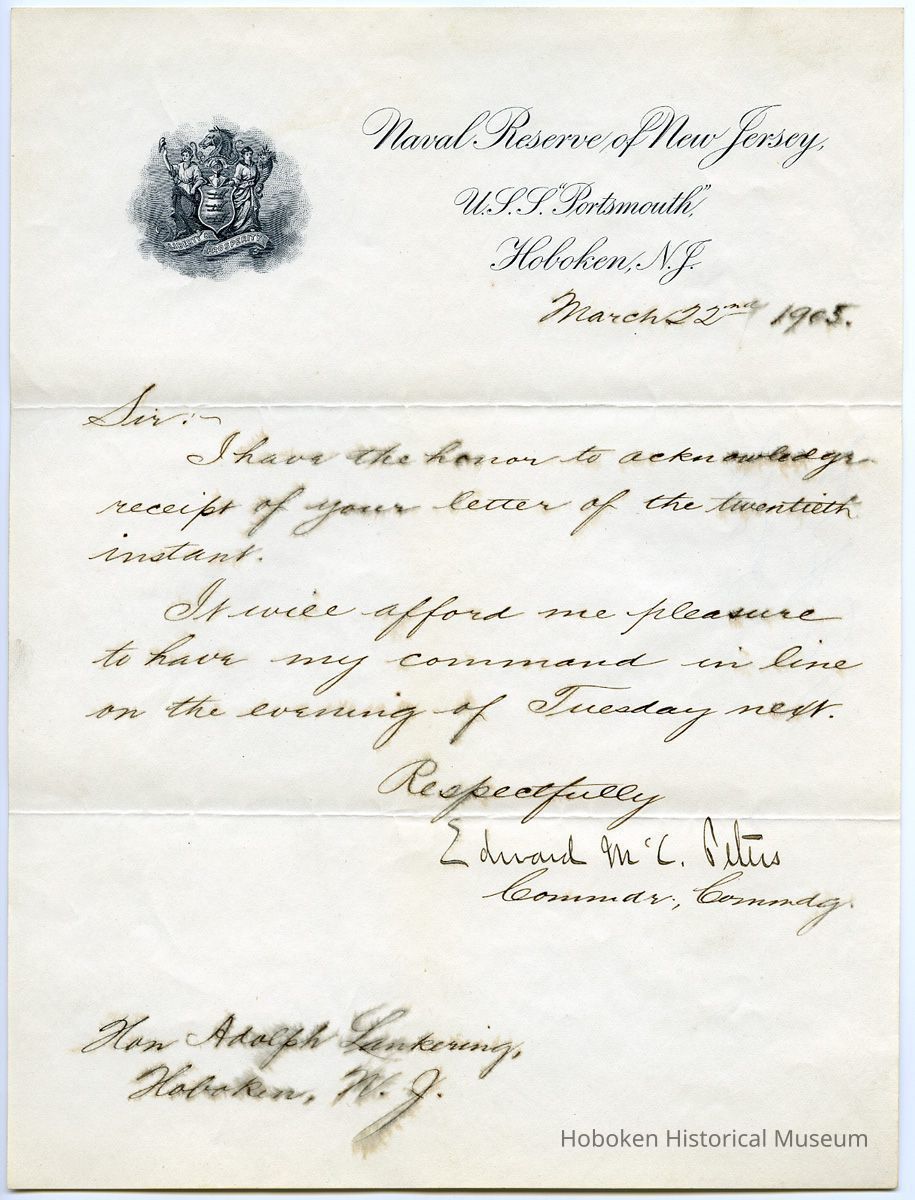 Naval Reserve of New Jersey,
U.S.S. "Portsmouth,"
Hoboken, N.J.
LIBERTY AND PROSPERITY
March 22nd 1905.
Sir:-
I have the honor to acknowledge
receipt of your letter of the twentieth
instant.
It will afford me pleasure
to have my command in line
on the evening of Tuesday next.
Respectfully
Edward McC. Peters
Commdr., Commdg.
Hon Adolph Lankering,
Hoboken, N. J.
Hoboken Historical Museum